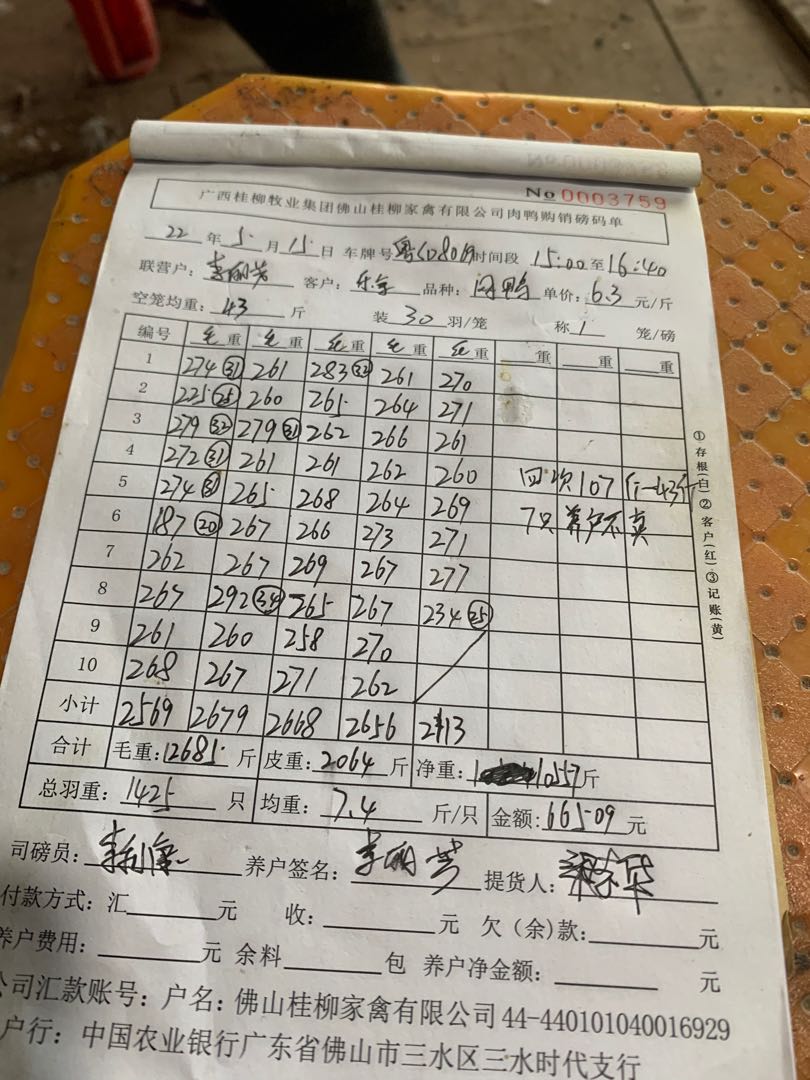 No 0003759
广西桂柳牧业集团佛山桂柳家禽有限公司肉鸭购销磅码单
22 年 5 月 15 日 车牌号 时间段 15:00 至 16:40
联营户: 李丽芳 客户: 品种: 肉鸭 单价: 6.3 元/斤
空笼均重: 43 斤 装 30 羽/笼 称 1 笼/磅
编号 毛重 毛重 毛重 毛重 毛重 重 重 重
1 274 (31) 261 283 (32) 261 270
2 225 (25) 260 265 264 271
3 279 (32) 279 (31) 262 266 261
4 272 (31) 261 261 262 260 四次 107斤-43斤
5 274 (31) 265 268 264 269 7只 养户不卖
6 187 (20) 267 266 273 271
7 262 267 269 267 277
8 267 292 (34) 265 267 234 (25)
9 261 260 258 270
10 268 267 271 262
小计 2569 2679 2668 2656 2113
合计 毛重: 12685 斤 皮重: 2064 斤 净重: 10557 斤
总羽重: 1425 只 均重: 7.4 斤/只 金额: 66509 元
司磅员: 养户签名: 李丽芳 提货人:
付款方式: 汇 元 收: 元 欠(余)款: 元
养户费用: 元 余料 包 养户净金额: 元
公司汇款账号: 户名: 佛山桂柳家禽有限公司 44-440101040016929
户行: 中国农业银行广东省佛山市三水区三水时代支行
①存根(白) ②客户(红) ③记账(黄)